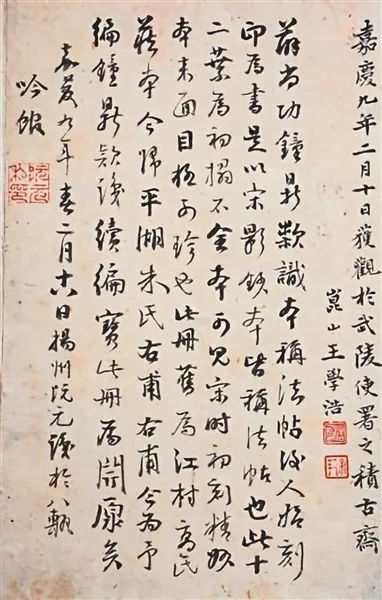 嘉慶九年二月十日獲觀於武陵使署之積古齋
崑山王學浩
薛尚功鐘鼎款識本稱法帖後人始刻
印為書是以宋影鈔本皆稱法帖也此十
二葉為初搨不全本可見宋時初刻精好
本來面目極可珍也此冊舊為江村高氏
藏本今歸平湖朱氏右甫右甫今為予
編鐘鼎款識續編寶此冊為矣
嘉慶九年春二月十六日揚州阮元識於八甎
吟館